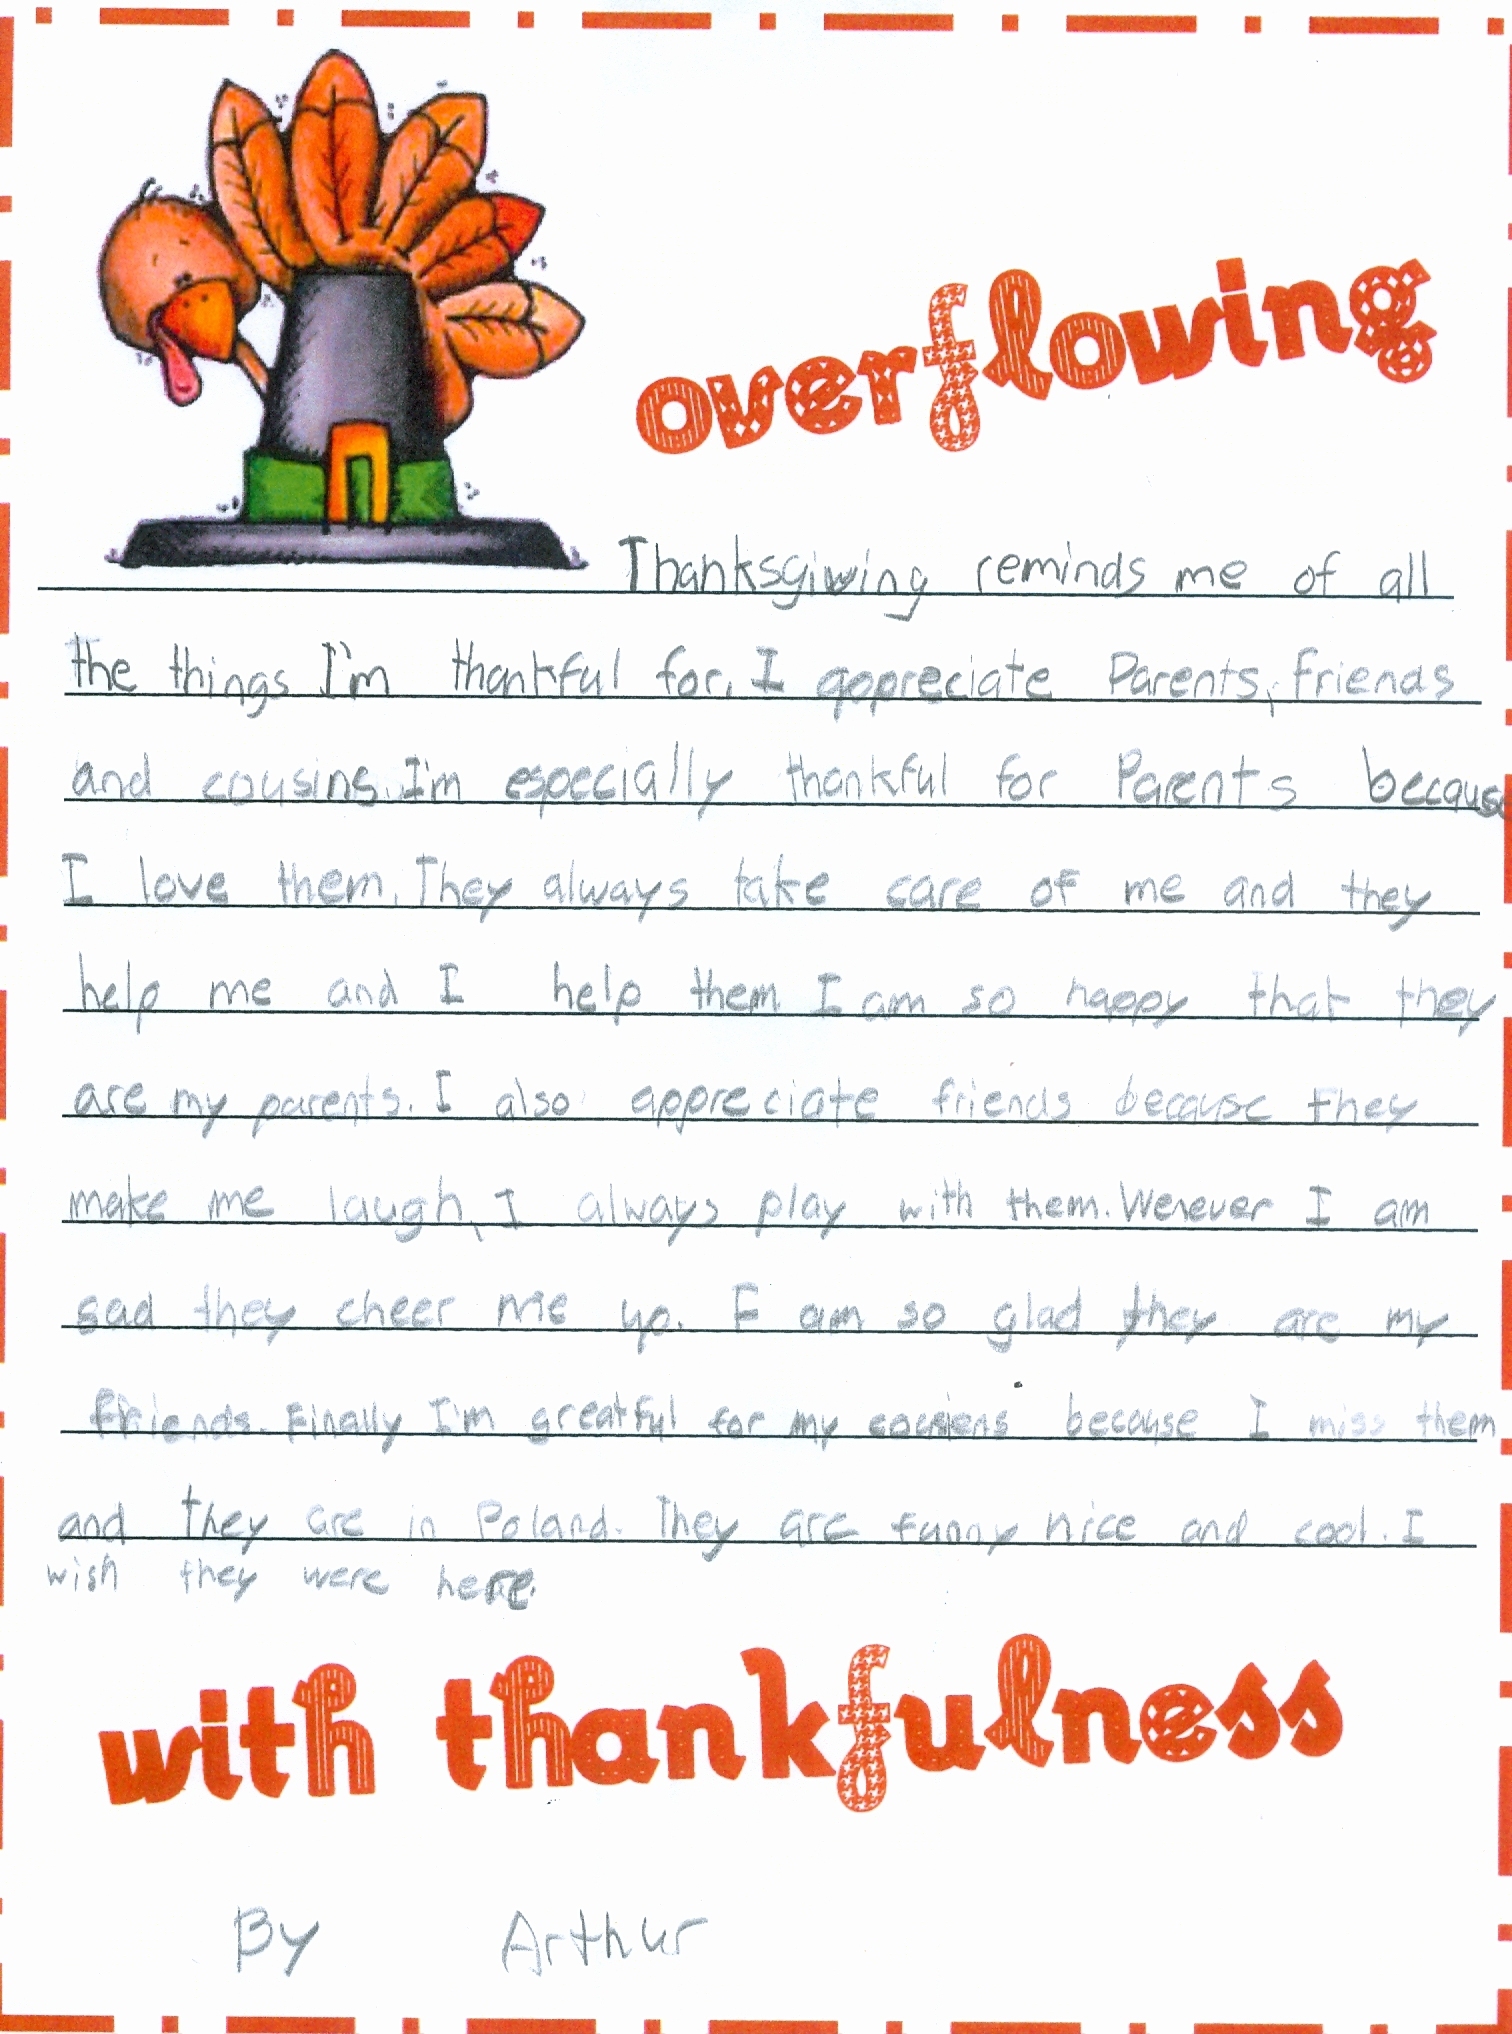 overflowing
Thanksgiving reminds me of all
the things I'm thankful for. I appreciate Parents, friends
and cousins. I'm especially thankful for Parents because
I love them. They always take care of me and they
help me and I help them I am so happy that they
are my parents. I also appreciate friends because they
make me laugh, I always play with them. Wenever I am
sad they cheer me up. I am so glad they are my
friends. Finally I'm greatful for my cousiens because I miss them
and they are in Poland. They are funny nice and cool. I
wish they were here.
with thankfulness
By Arthur